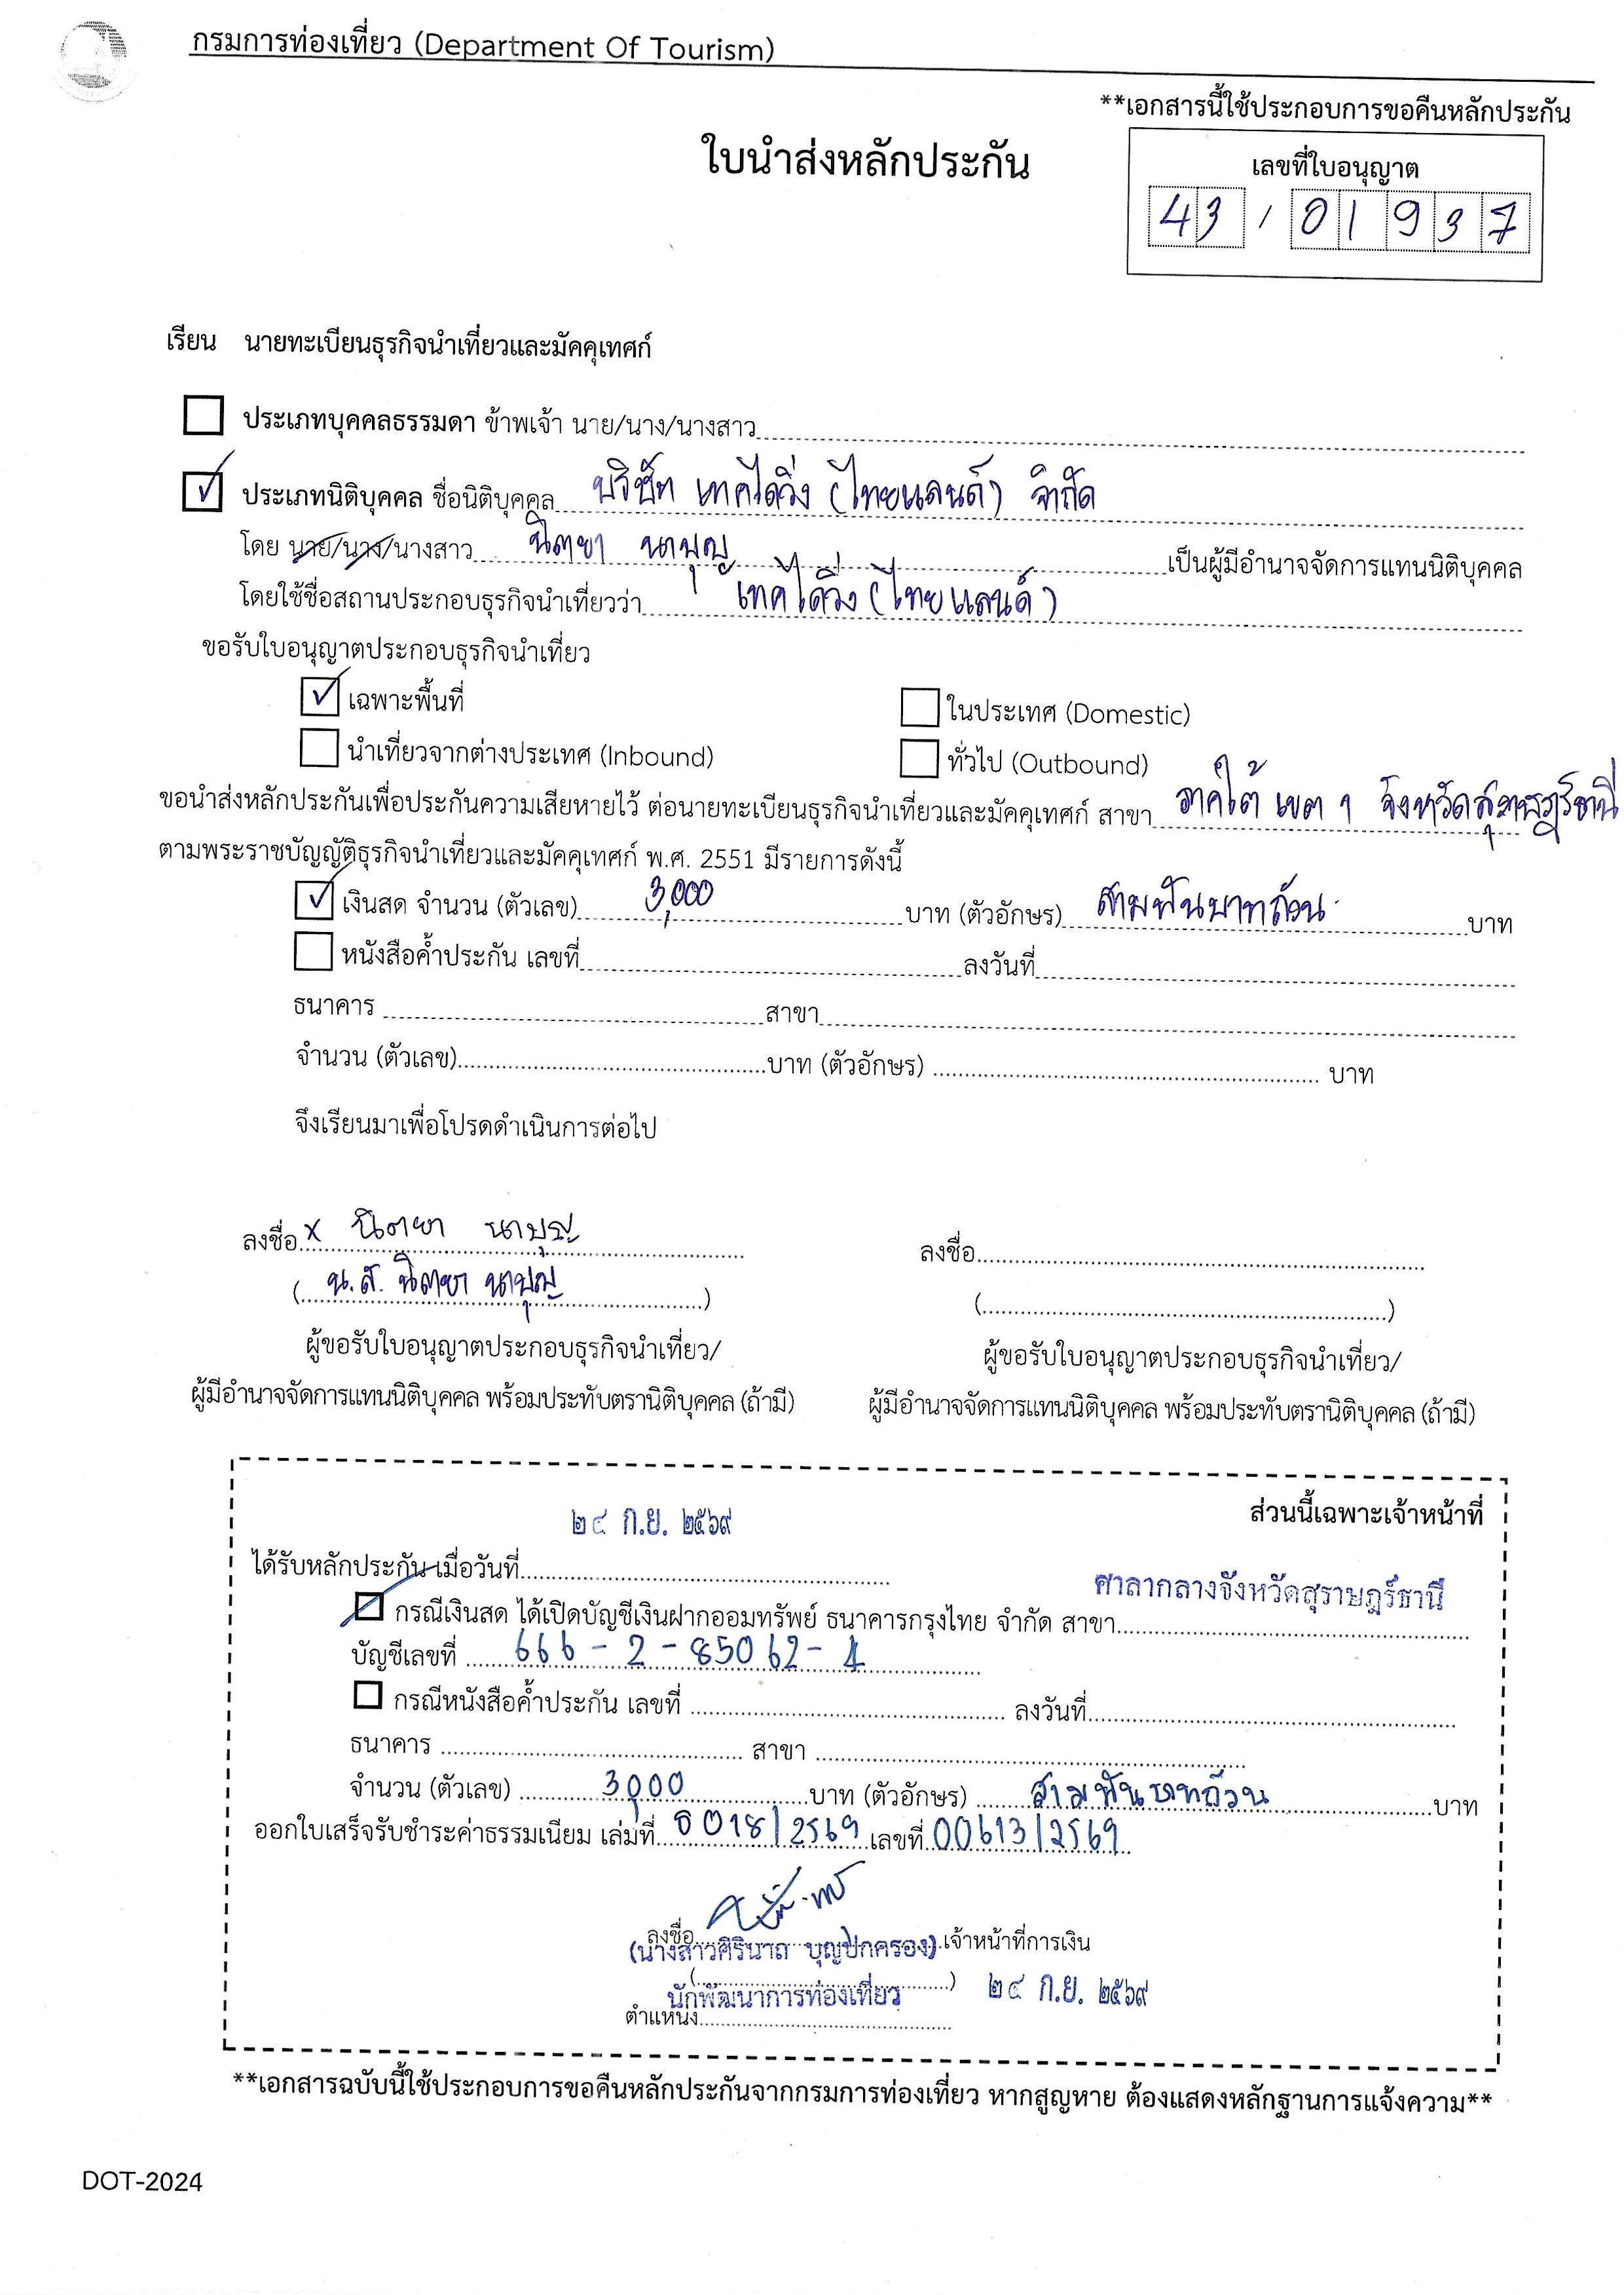 กรมการท่องเที่ยว (Department Of Tourism)
**เอกสารนี้ใช้ประกอบการขอคืนหลักประกัน
ใบนำส่งหลักประกัน
เลขที่ใบอนุญาต
43 / 01937
เรียน นายทะเบียนธุรกิจนำเที่ยวและมัคคุเทศก์
ประเภทบุคคลธรรมดา ข้าพเจ้า นาย/นาง/นางสาว
ประเภทนิติบุคคล ชื่อนิติบุคคล บริษัท เทคไดวิ่ง (ไทยแลนด์) จำกัด
โดย นาย/นาง/นางสาว นิตยา นาบุญ เป็นผู้มีอำนาจจัดการแทนนิติบุคคล
โดยใช้ชื่อสถานประกอบธุรกิจนำเที่ยวว่า เทคไดวิ่ง (ไทยแลนด์)
ขอรับใบอนุญาตประกอบธุรกิจนำเที่ยว
เฉพาะพื้นที่ ในประเทศ (Domestic)
นำเที่ยวจากต่างประเทศ (Inbound) ทั่วไป (Outbound)
ขอนำส่งหลักประกันเพื่อประกันความเสียหายไว้ ต่อนายทะเบียนธุรกิจนำเที่ยวและมัคคุเทศก์ สาขา ภาคใต้ เขต 1 จังหวัดสุราษฎร์ธานี
ตามพระราชบัญญัติธุรกิจนำเที่ยวและมัคคุเทศก์ พ.ศ. 2551 มีรายการดังนี้
เงินสด จำนวน (ตัวเลข) 3,000 บาท (ตัวอักษร) สามพันบาทถ้วน บาท
หนังสือค้ำประกัน เลขที่ ลงวันที่
ธนาคาร สาขา
จำนวน (ตัวเลข) บาท (ตัวอักษร) บาท
จึงเรียนมาเพื่อโปรดดำเนินการต่อไป
ลงชื่อ x นิตยา นาบุญ ลงชื่อ
(น.ส. นิตยา นาบุญ) ( )
ผู้ขอรับใบอนุญาตประกอบธุรกิจนำเที่ยว/ ผู้ขอรับใบอนุญาตประกอบธุรกิจนำเที่ยว/
ผู้มีอำนาจจัดการแทนนิติบุคคล พร้อมประทับตรานิติบุคคล (ถ้ามี) ผู้มีอำนาจจัดการแทนนิติบุคคล พร้อมประทับตรานิติบุคคล (ถ้ามี)
ส่วนนี้เฉพาะเจ้าหน้าที่
ได้รับหลักประกัน เมื่อวันที่ ๒๔ ก.ย. ๒๕๖๙
กรณีเงินสด ได้เปิดบัญชีเงินฝากออมทรัพย์ ธนาคารกรุงไทย จำกัด สาขา ศาลากลางจังหวัดสุราษฎร์ธานี
บัญชีเลขที่ 666-2-85062-4
กรณีหนังสือค้ำประกัน เลขที่ ลงวันที่
ธนาคาร สาขา
จำนวน (ตัวเลข) 3,000 บาท (ตัวอักษร) สามพันบาทถ้วน บาท
ออกใบเสร็จรับชำระค่าธรรมเนียม เล่มที่ 0018/2569 เลขที่ 00613/2569
ลงชื่อ เจ้าหน้าที่การเงิน
(นางสาวศิรินาถ บุญปกครอง)
นักพัฒนาการท่องเที่ยว ๒๔ ก.ย. ๒๕๖๙
ตำแหน่ง
**เอกสารฉบับนี้ใช้ประกอบการขอคืนหลักประกันจากกรมการท่องเที่ยว หากสูญหาย ต้องแสดงหลักฐานการแจ้งความ**
DOT-2024